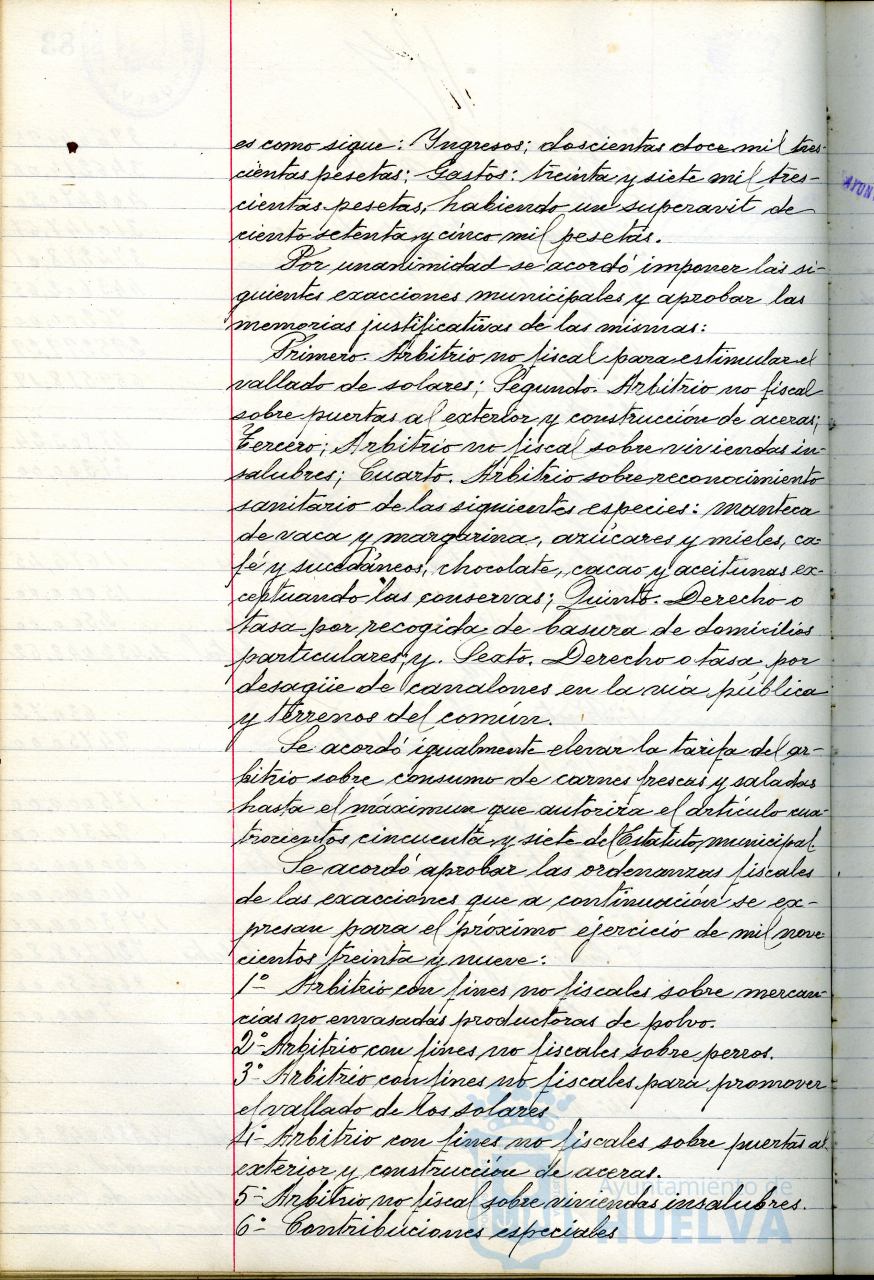 es como sigue: Yngresos; doscientas doce mil tres-
cientas pesetas; Gastos: treinta y siete mil tres-
cientas pesetas, habiendo un superavit de
ciento setenta y cinco mil pesetas.
Por unanimidad se acordó imponer las si-
guientes exacciones municipales y aprobar las
memorias justificativas de las mismas:
Primero. Arbitrio no fiscal para estimular el
vallado de solares; Segundo. Arbitrio no fiscal
sobre puertas al exterior y construcción de aceras;
Tercero; Arbitrio no fiscal sobre viviendas in-
salubres; Cuarto. Arbitrio sobre reconocimiento
sanitario de las siguientes especies: manteca
de vaca y margarina, azúcares y mieles, ca-
fé y sucedáneos, chocolate, cacao y aceitunas ex-
ceptuando las conservas; Quinto. Derecho o
tasa por recogida de basura de domicilios
particulares; y. Sexto. Derecho o tasa por
desagüe de canalones en la via pública
y terrenos del común.
Se acordó igualmente elevar la tarifa del ar-
bitrio sobre consumo de carnes frescas y saladas
hasta el máximun que autoriza el artículo cua-
trocientos cincuenta y siete del Estatuto municipal.
Se acordó aprobar las ordenanzas fiscales
de las exacciones que a continuación se ex-
presan para el próximo ejercicio de mil nove-
cientos treinta y nueve:
1º- Arbitrio con fines no fiscales sobre mercan-
cías no envasadas productoras de polvo.
2º- Arbitrio con fines no fiscales sobre perros.
3º- Arbitrio con fines no fiscales para promover
el vallado de los solares
4º- Arbitrio con fines no fiscales sobre puertas al
exterior y construcción de aceras.
5º- Arbitrio no fiscal sobre viviendas insalubres.
6º- Contribuciones especiales
Ayuntamiento de
HUELVA